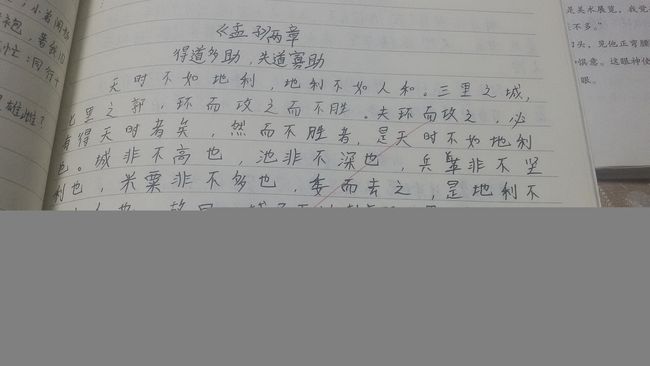 《孟子》两章
得道多助，失道寡助
天时不如地利，地利不如人和。三里之城，
七里之郭，环而攻之而不胜。夫环而攻之，必
有得天时者矣，然而不胜者，是天时不如地利
也。城非不高也，池非不深也，兵革非不坚
利也，米粟非不多也，委而去之，是地利不
雄雌？
是美术展览，我觉
不多。”
头，见他正弯腰
惧意。这眼神使
眼。